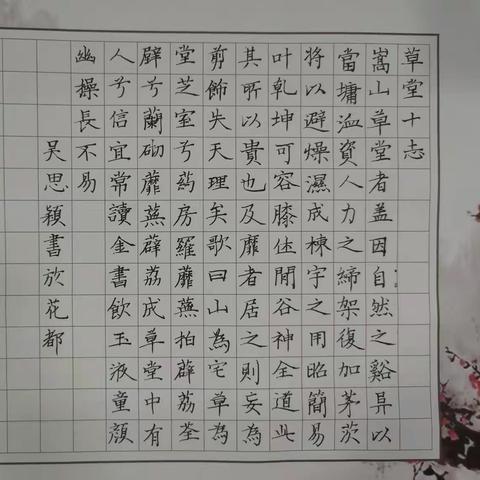 草堂十志
嵩山草堂者盖因自然之谿阜以
當墉洫資人力之締架復加茅茨
將以避燥濕成棟宇之用昭簡易
叶乾坤可容膝休閒谷神全道此
其所以貴也及靡者居之則妄為
剪飾失天理矣歌曰山為宅草為
堂芝室兮葯房羅蘼蕪拍薜荔荃
壁兮蘭砌蘼蕪薜荔成草堂中有
人兮信宜常讀金書飲玉液童顏
幽操長不易
吴思穎書於花都